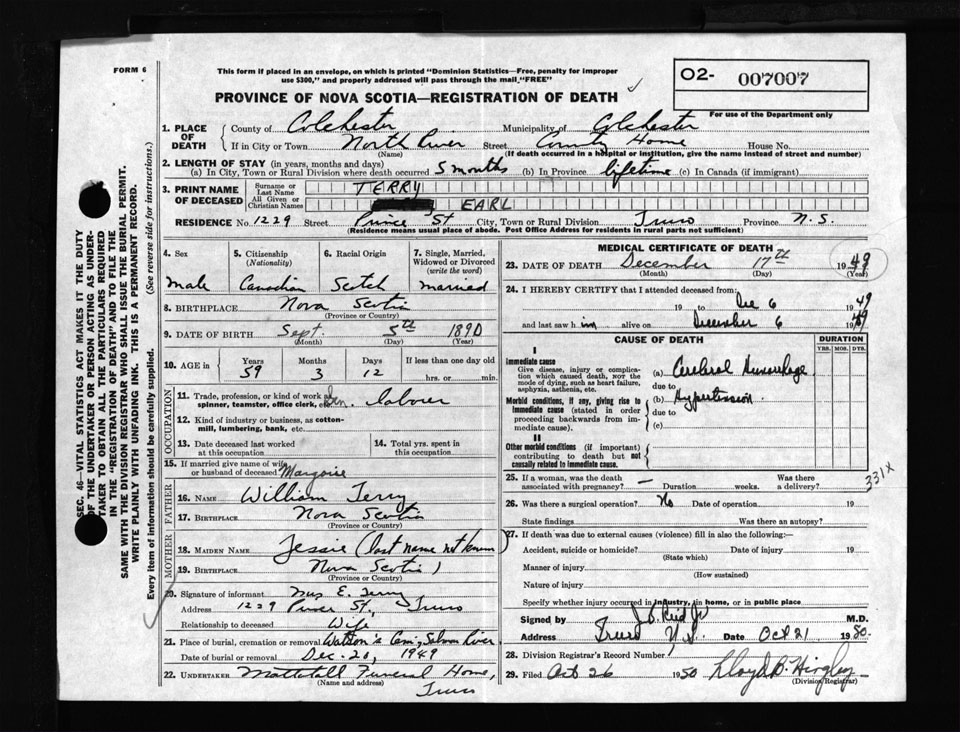 FORM 6
This form if placed in an envelope, on which is printed "Dominion Statistics—Free, penalty for improper
use $300," and properly addressed will pass through the mail "FREE"
O2- 007007
For use of the Department only
PROVINCE OF NOVA SCOTIA—REGISTRATION OF DEATH
SEC. 46—VITAL STATISTICS ACT MAKES IT THE DUTY
OF THE UNDERTAKER OR PERSON ACTING AS UNDER-
TAKER TO OBTAIN ALL THE PARTICULARS REQUIRED
IN THE "REGISTRATION OF DEATH" AND TO FILE THE
SAME WITH THE DIVISION REGISTRAR WHO SHALL ISSUE THE BURIAL PERMIT.
WRITE PLAINLY WITH UNFADING INK. THIS IS A PERMANENT RECORD.
Every item of information should be carefully supplied. (See reverse side for instructions.)
1. PLACE OF DEATH
County of Colchester Municipality of Colchester
If in City or Town North River Street County Home House No.
(Name) (If death occurred in a hospital or institution, give the name instead of street and number)
2. LENGTH OF STAY (in years, months and days)
(a) In City, Town or Rural Division where death occurred 5 months (b) In Province lifetime (c) In Canada (if immigrant)
3. PRINT NAME OF DECEASED
Surname or Last Name TERRY
All Given or Christian Names EARL
RESIDENCE No. 1229 Street Prince St City, Town or Rural Division Truro Province N.S.
(Residence means usual place of abode. Post Office Address for residents in rural parts not sufficient)
4. Sex
male
5. Citizenship (Nationality)
Canadian
6. Racial Origin
Scotch
7. Single, Married, Widowed or Divorced (write the word)
married
8. BIRTHPLACE Nova Scotia
(Province or Country)
9. DATE OF BIRTH Sept. 5th 1890
(Month) (Day) (Year)
10. AGE in
Years 59 Months 3 Days 12
If less than one day old
hrs. or min.
OCCUPATION
11. Trade, profession, or kind of work as
spinner, teamster, office clerk, etc. Gen. laborer
12. Kind of industry or business, as cotton-
mill, lumbering, bank, etc.
13. Date deceased last worked
at this occupation
14. Total yrs. spent in
this occupation
15. If married give name of wife
or husband of deceased Margorie
FATHER
16. NAME William Terry
17. BIRTHPLACE Nova Scotia
(Province or Country)
MOTHER
18. MAIDEN NAME Jessie (last name not known)
19. BIRTHPLACE Nova Scotia
(Province or Country)
20. Signature of informant Mrs E. Terry
Address 1229 Prince St., Truro
Relationship to deceased Wife
21. Place of burial, cremation or removal Watson's Cem, Salmon River
Date of burial or removal Dec. 20, 1949
22. UNDERTAKER Mattatall Funeral Home,
(Name and address) Truro
MEDICAL CERTIFICATE OF DEATH
23. DATE OF DEATH December 17th 1949
(Month) (Day) (Year)
24. I HEREBY CERTIFY that I attended deceased from:
19 to Dec 6 1949
and last saw h im alive on December 6 1949
CAUSE OF DEATH
DURATION
YRS. MOS. DYS.
I
Immediate cause
Give disease, injury or complica-
tion which caused death, NOT the
mode of dying, such as heart failure,
asphyxia, asthenia, etc.
(a) Cerebral Hemorrhage
due to
Morbid conditions, if any, giving rise to
immediate cause (stated in order
proceeding backwards from im-
mediate cause).
(b) Hypertension
due to
(c)
II
Other morbid conditions (if important)
contributing to death but not
causally related to immediate cause.
25. If a woman, was the death
associated with pregnancy? — Duration weeks.
Was there
a delivery?
331X
26. Was there a surgical operation? No Date of operation 19
State findings Was there an autopsy?
27. If death was due to external causes (violence) fill in also the following:—
Accident, suicide or homicide? Date of injury 19
(State which)
Manner of injury
(How sustained)
Nature of injury
Specify whether injury occurred in industry, in home, or in public place
Signed by J.B. Reid Jr M.D.
Address Truro N.S. Date Oct 21 1950.
28. Division Registrar's Record Number
29. Filed Oct 26 1950 Lloyd B. Hingley
(Division Registrar)